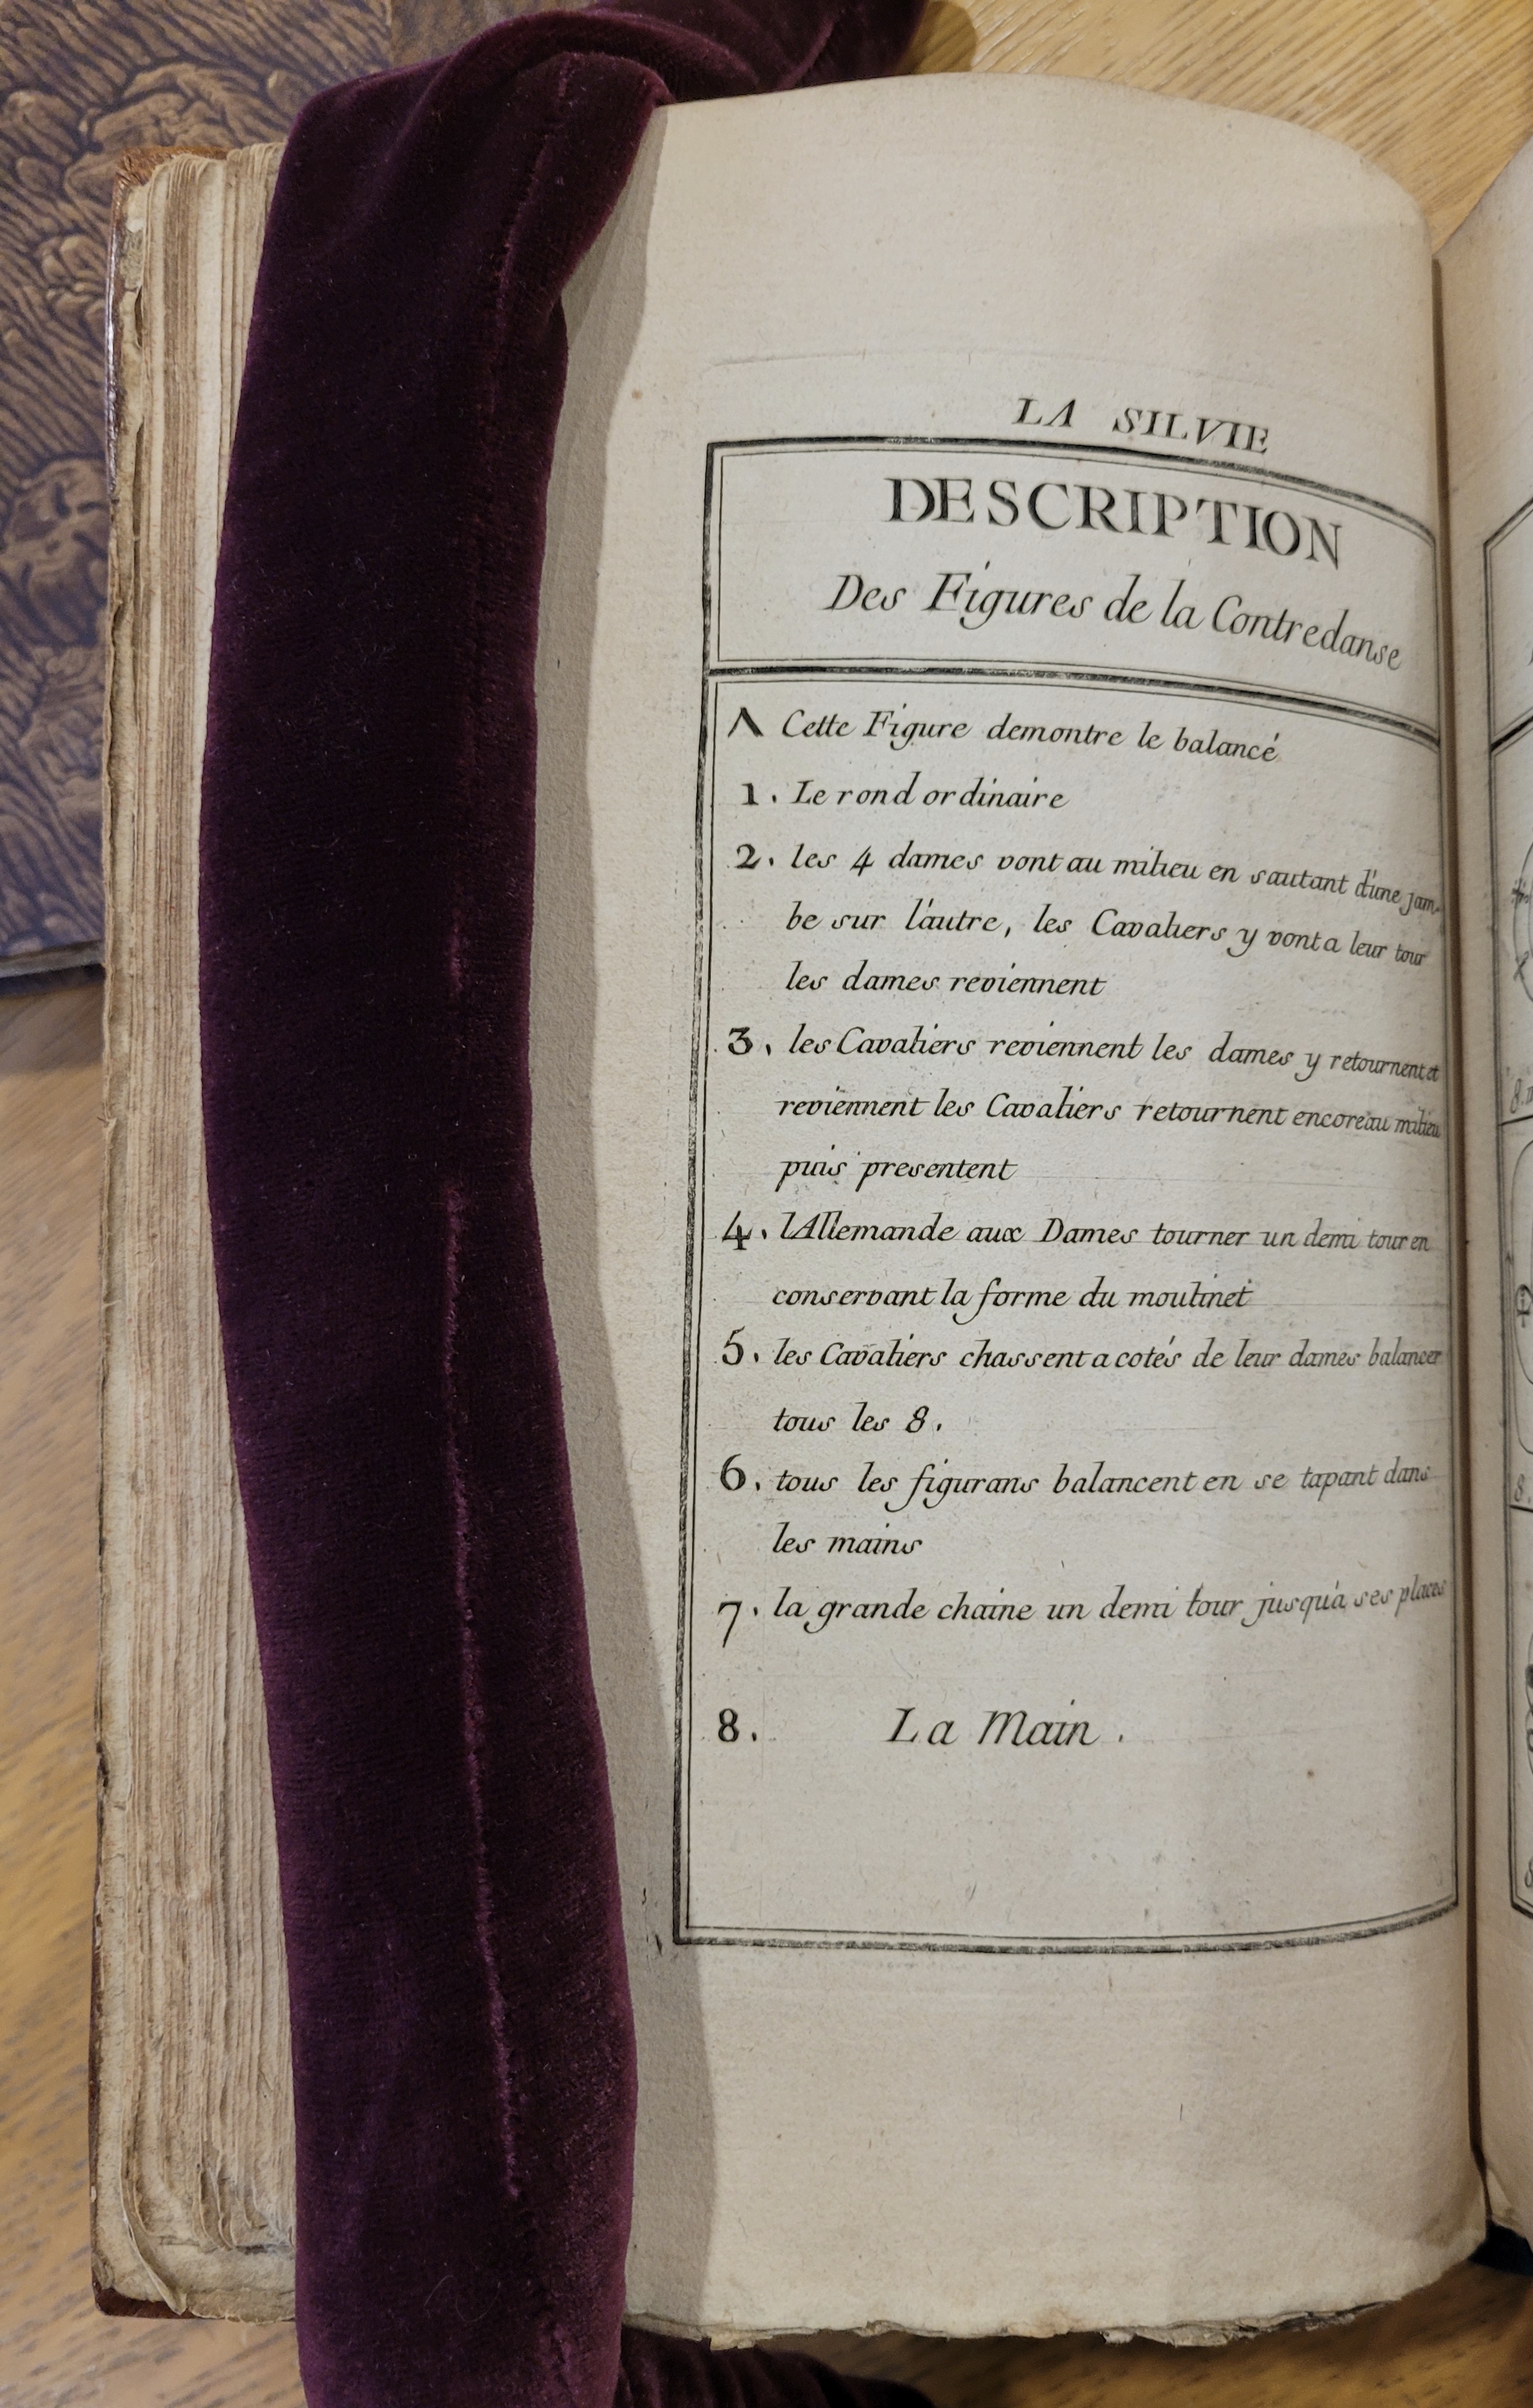 LA SILVIE
DESCRIPTION
Des Figures de la Contredanse
Λ Cette Figure demontre le balancé
1. Le rond ordinaire
2. les 4 dames vont au milieu en sautant d'une jam-
be sur l'autre, les Cavaliers y vont a leur tour
les dames reviennent
3. les Cavaliers reviennent les dames y retournent et
reviennent les Cavaliers retournent encore au milieu
puis presentent
4. l'Allemande aux Dames tourner un demi tour en
conservant la forme du moulinet
5. les Cavaliers chassent a cotés de leur dames balancer
tous les 8.
6. tous les figurans balancent en se tapant dans
les mains
7. la grande chaine un demi tour jusqu'a ses places
8. La Main.